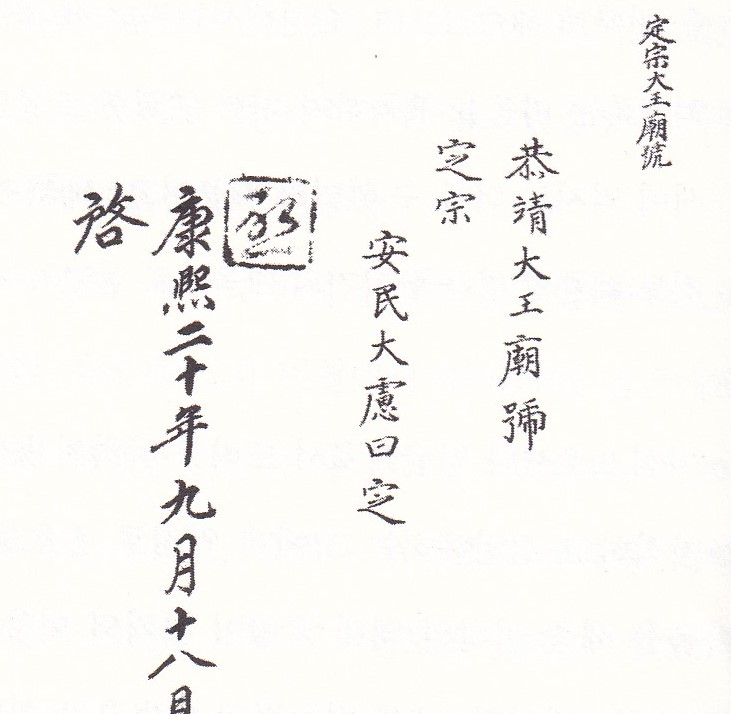 定宗大王廟號
恭靖大王廟號
定宗
安民大慮曰定
康熙二十年九月十八日
啓